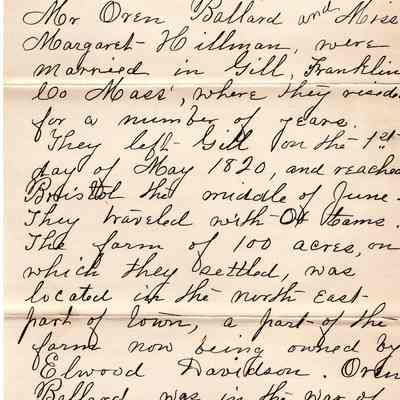 Mr Oren Ballard and Miss
Margaret Hillman, were
married in Gill, Franklin
Co Mass', where they resid
for a number of years.
They left Gill on the 1st
day of May 1820, and reached
Bristol the middle of June.
They traveled with Ox teams.
The farm of 100 acres, on
which they settled, was
located in the north east
part of town, a part of the
farm now being owned by
Elwood Davidson. Oren
Ballard was in the war of